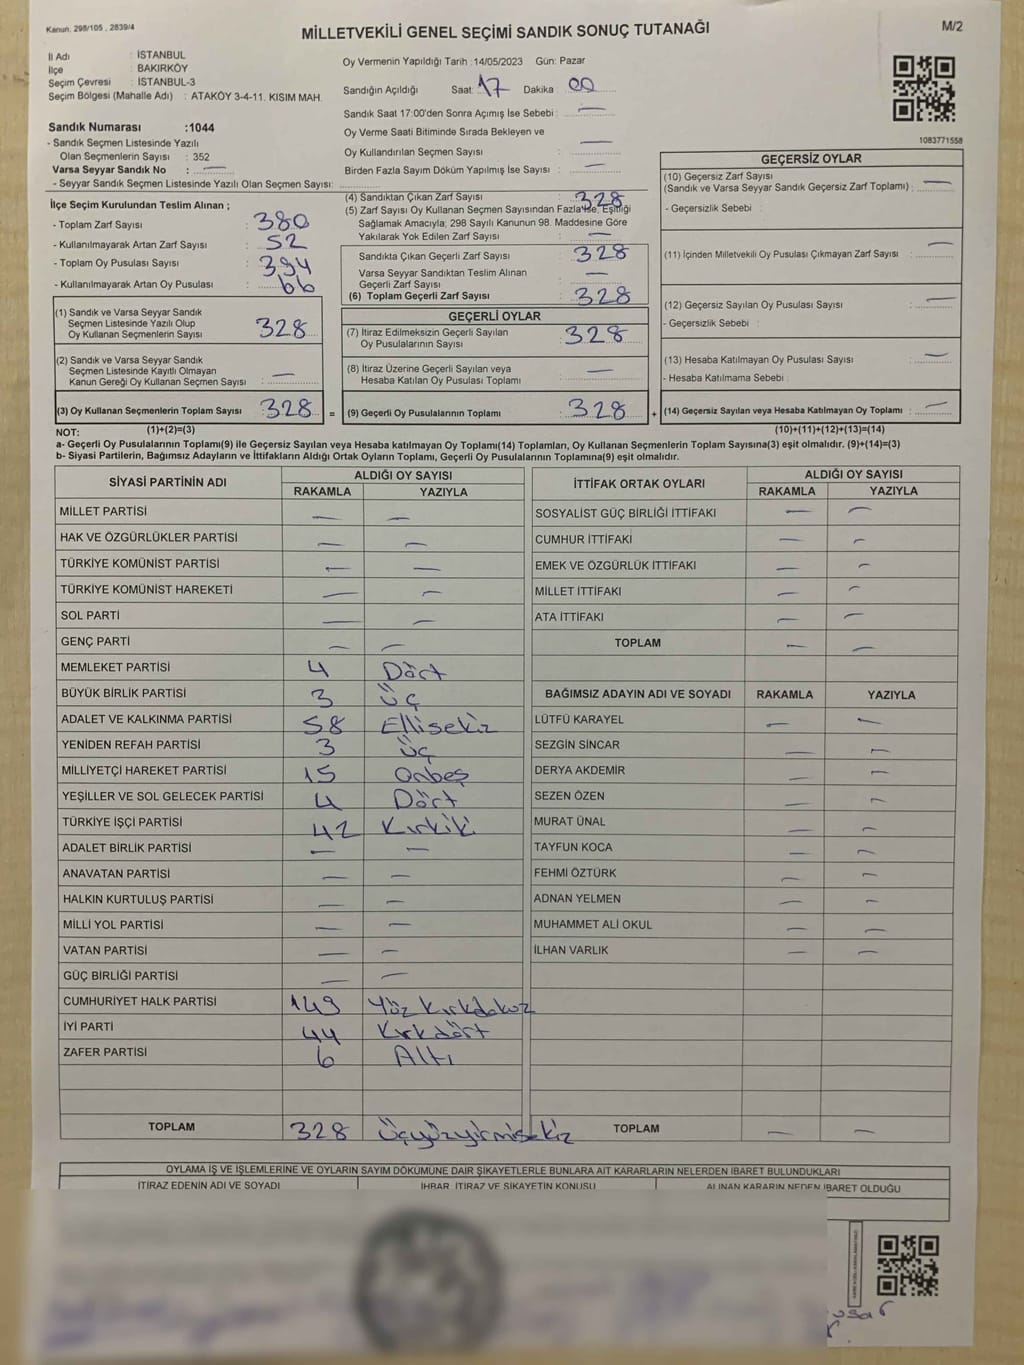 Kanun. 298/105 , 2839/4
MİLLETVEKİLİ GENEL SEÇİMİ SANDIK SONUÇ TUTANAĞI
M/2
İl Adı : İSTANBUL
İlçe : BAKIRKÖY
Seçim Çevresi : İSTANBUL-3
Seçim Bölgesi (Mahalle Adı) : ATAKÖY 3-4-11. KISIM MAH.
Oy Vermenin Yapıldığı Tarih :14/05/2023 Gün: Pazar
Sandığın Açıldığı Saat: 17 Dakika : 00
Sandık Saat 17:00'den Sonra Açımış İse Sebebi : —
Oy Verme Saati Bitiminde Sırada Bekleyen ve
Oy Kullandırılan Seçmen Sayısı : —
Birden Fazla Sayım Döküm Yapılmış İse Sayısı : —
1083771558
Sandık Numarası :1044
- Sandık Seçmen Listesinde Yazılı
Olan Seçmenlerin Sayısı : 352
Varsa Seyyar Sandık No : —
- Seyyar Sandık Seçmen Listesinde Yazılı Olan Seçmen Sayısı:
İlçe Seçim Kurulundan Teslim Alınan ;
- Toplam Zarf Sayısı : 380
- Kullanılmayarak Artan Zarf Sayısı : 52
- Toplam Oy Pusulası Sayısı : 394
- Kullanılmayarak Artan Oy Pusulası : 66
(1) Sandık ve Varsa Seyyar Sandık
Seçmen Listesinde Yazılı Olup
Oy Kullanan Seçmenlerin Sayısı : 328
(2) Sandık ve Varsa Seyyar Sandık
Seçmen Listesinde Kayıtlı Olmayan
Kanun Gereği Oy Kullanan Seçmen Sayısı : —
(3) Oy Kullanan Seçmenlerin Toplam Sayısı : 328 =
(4) Sandıktan Çıkan Zarf Sayısı : 328
(5) Zarf Sayısı Oy Kullanan Seçmen Sayısından Fazla İse, Eşitliği
Sağlamak Amacıyla, 298 Sayılı Kanunun 98. Maddesine Göre
Yakılarak Yok Edilen Zarf Sayısı : —
Sandıkta Çıkan Geçerli Zarf Sayısı : 328
Varsa Seyyar Sandıktan Teslim Alınan
Geçerli Zarf Sayısı : —
(6) Toplam Geçerli Zarf Sayısı : 328
GEÇERLİ OYLAR
(7) İtiraz Edilmeksizin Geçerli Sayılan
Oy Pusulalarının Sayısı : 328
(8) İtiraz Üzerine Geçerli Sayılan veya
Hesaba Katılan Oy Pusulası Toplamı : —
(9) Geçerli Oy Pusulalarının Toplamı : 328 +
GEÇERSİZ OYLAR
(10) Geçersiz Zarf Sayısı
(Sandık ve Varsa Seyyar Sandık Geçersiz Zarf Toplamı) : —
- Geçersizlik Sebebi :
(11) İçinden Milletvekili Oy Pusulası Çıkmayan Zarf Sayısı : —
(12) Geçersiz Sayılan Oy Pusulası Sayısı : —
- Geçersizlik Sebebi :
(13) Hesaba Katılmayan Oy Pusulası Sayısı : —
- Hesaba Katılmama Sebebi :
(14) Geçersiz Sayılan veya Hesaba Katılmayan Oy Toplamı : —
NOT: (1)+(2)=(3) (10)+(11)+(12)+(13)=(14)
a- Geçerli Oy Pusulalarının Toplamı(9) ile Geçersiz Sayılan veya Hesaba katılmayan Oy Toplamı(14) Toplamları, Oy Kullanan Seçmenlerin Toplam Sayısına(3) eşit olmalıdır. (9)+(14)=(3)
b- Siyasi Partilerin, Bağımsız Adayların ve İttifakların Aldığı Ortak Oyların Toplamı, Geçerli Oy Pusulalarının Toplamına(9) eşit olmalıdır.
SİYASİ PARTİNİN ADI ALDIĞI OY SAYISI
RAKAMLA YAZIYLA
MİLLET PARTİSİ — —
HAK VE ÖZGÜRLÜKLER PARTİSİ — —
TÜRKİYE KOMÜNİST PARTİSİ — —
TÜRKİYE KOMÜNİST HAREKETİ — —
SOL PARTİ — —
GENÇ PARTİ — —
MEMLEKET PARTİSİ 4 Dört
BÜYÜK BİRLİK PARTİSİ 3 üç
ADALET VE KALKINMA PARTİSİ 58 Ellisekiz
YENİDEN REFAH PARTİSİ 3 üç
MİLLİYETÇİ HAREKET PARTİSİ 15 Onbeş
YEŞİLLER VE SOL GELECEK PARTİSİ 4 Dört
TÜRKİYE İŞÇİ PARTİSİ 42 Kırkiki
ADALET BİRLİK PARTİSİ — —
ANAVATAN PARTİSİ — —
HALKIN KURTULUŞ PARTİSİ — —
MİLLİ YOL PARTİSİ — —
VATAN PARTİSİ — —
GÜÇ BİRLİĞİ PARTİSİ — —
CUMHURİYET HALK PARTİSİ 149 Yüz Kırkdokuz
İYİ PARTİ 44 Kırkdört
ZAFER PARTİSİ 6 Altı
TOPLAM 328 üçyüzyirmisekiz
İTTİFAK ORTAK OYLARI ALDIĞI OY SAYISI
RAKAMLA YAZIYLA
SOSYALİST GÜÇ BİRLİĞİ İTTİFAKI — —
CUMHUR İTTİFAKI — —
EMEK VE ÖZGÜRLÜK İTTİFAKI — —
MİLLET İTTİFAKI — —
ATA İTTİFAKI — —
TOPLAM — —
BAĞIMSIZ ADAYIN ADI VE SOYADI RAKAMLA YAZIYLA
LÜTFÜ KARAYEL — —
SEZGİN SİNCAR — —
DERYA AKDEMİR — —
SEZEN ÖZEN — —
MURAT ÜNAL — —
TAYFUN KOCA — —
FEHMİ ÖZTÜRK — —
ADNAN YELMEN — —
MUHAMMET ALİ OKUL — —
İLHAN VARLIK — —
TOPLAM — —
OYLAMA İŞ VE İŞLEMLERİNE VE OYLARIN SAYIM DÖKÜMÜNE DAİR ŞİKAYETLERLE BUNLARA AİT KARARLARIN NELERDEN İBARET BULUNDUKLARI
İTİRAZ EDENİN ADI VE SOYADI İHBAR, İTİRAZ VE ŞİKAYETİN KONUSU ALINAN KARARIN NEDEN İBARET OLDUĞU